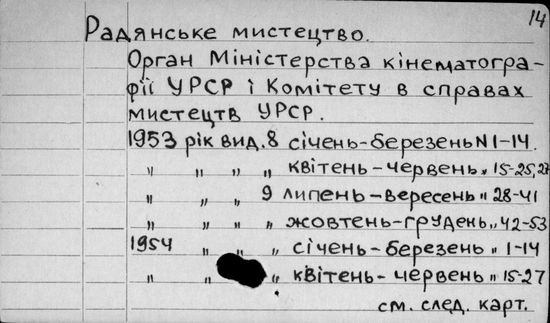 14
Радянське мистецтво.
Орган Міністерства кінематогра-
фії УРСР і Комітету в справах
мистецтв УРСР.
1953 рік вид. 8 січень-березень N 1-14.
" " " " квітень-червень " 15-25, 27
" " " 9 липень-вересень " 28-41
" " " " жовтень-грудень " 42-53
1954 " " " січень-березень " 1-14
" " " квітень-червень " 15-27
см. след. карт.